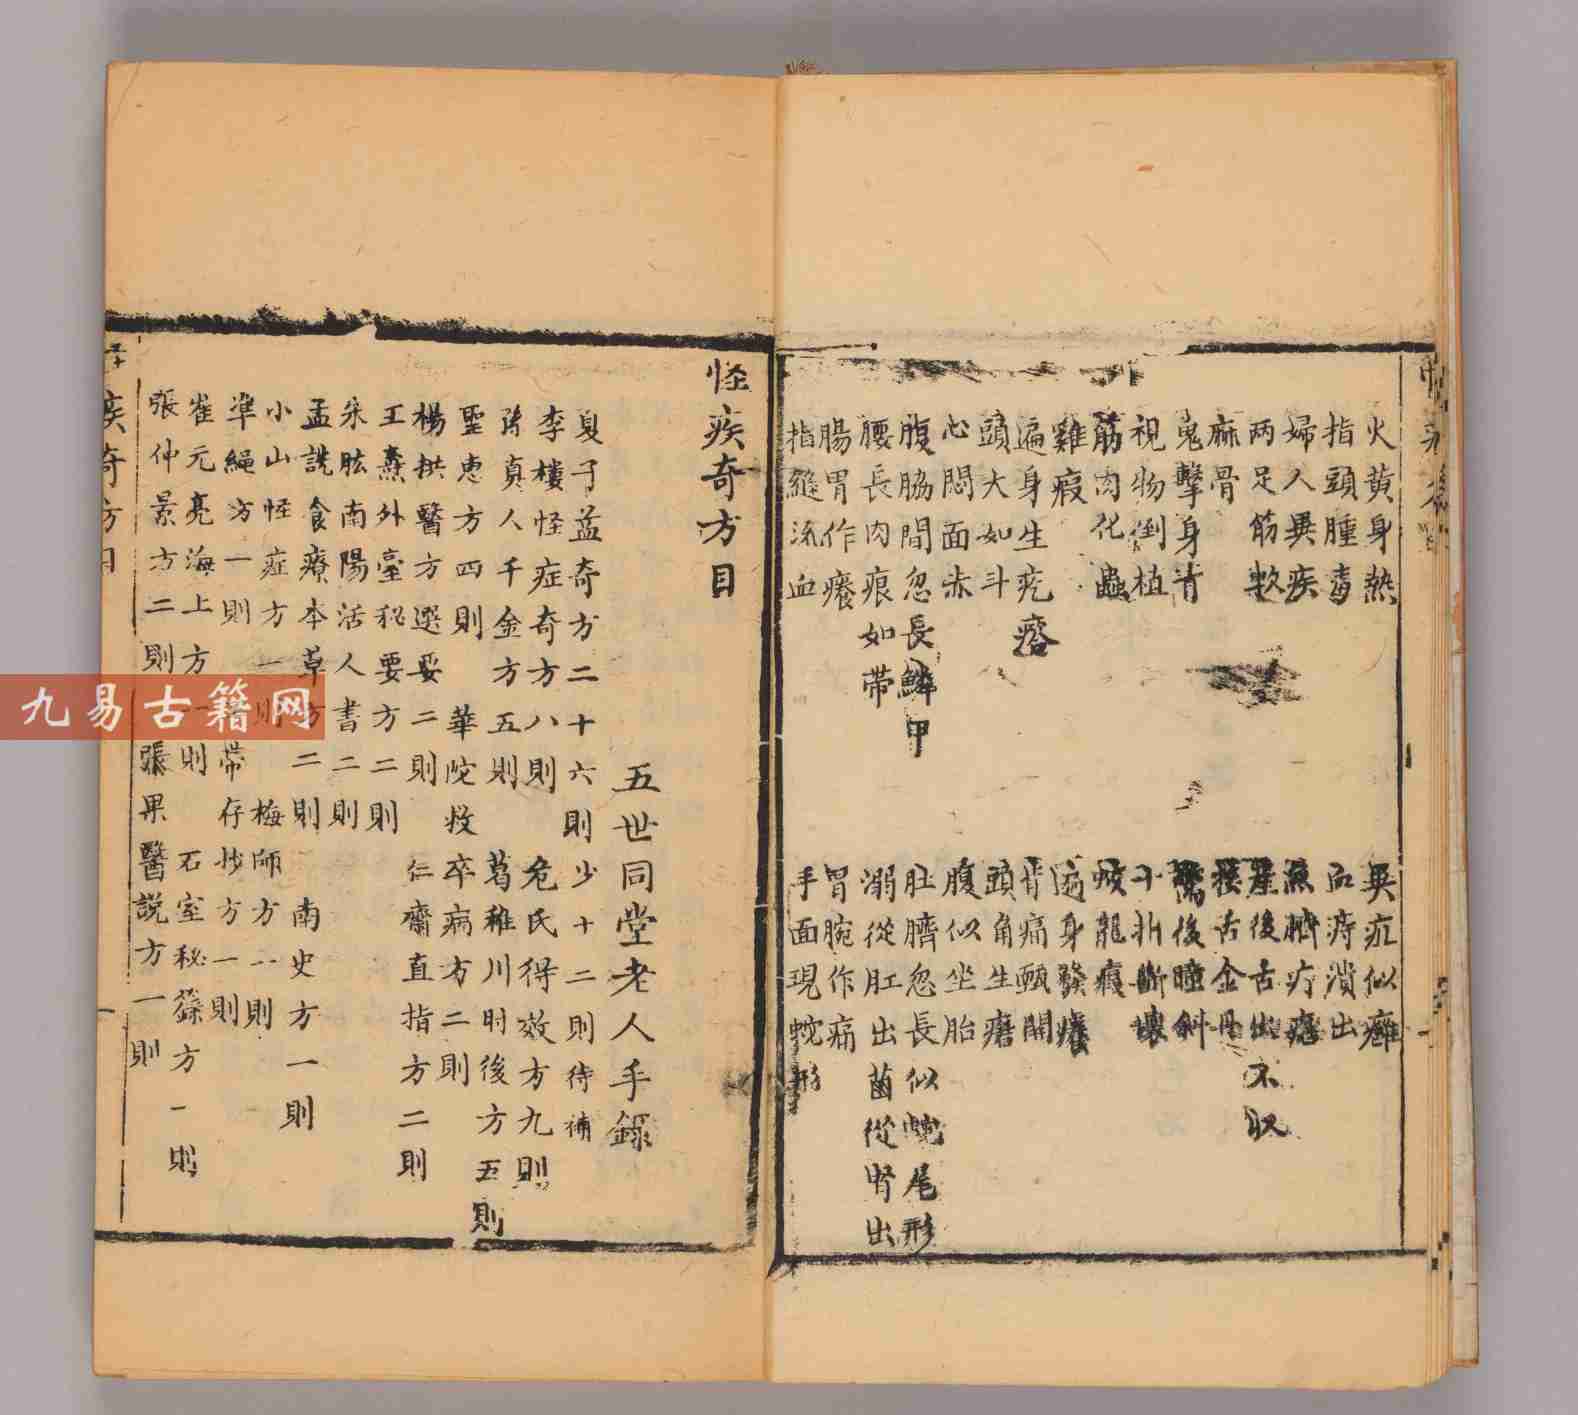 火黄身熱
指頭腫毒
婦人異疾
両足筋軟
麻骨
鬼擊身青
視物倒植
筋肉化蟲
雞瘕
遍身生疙瘩
頭大如斗
心悶面赤
腹脇間忽長鱗甲
腰長肉痕如帶
腸胃作癢
指縫流血
異疪似癰
血痔潰出
産後舌出不収
接舌金丹
驚後瞳斜
蛟龍瘕
遍身發癢
背痛
頭角生瘡
腹似坐胎
肚臍忽長似蛇尾形
溺從肛出菌從腎出
胃腕作痛
手面現蛇形
怪疾奇方目
五世同堂老人手錄
夏子益奇方二十六則少十二則待補
李樓怪症奇方八則 危氏得效方九則
孫真人千金方五則 葛稚川肘後方五則
聖恵方四則 華陀救卒病方二則
楊拱醫方選要二則 仁齋直指方二則
王燾外臺秘要方二則
朱肱南陽活人書二則
孟詵食療本草方二則 南史方一則
小山怪症方一則 梅師方一則
準繩方一則 帶存抄方一則
崔元亮海上方一則 石室秘籙方一則
張仲景方二則 張果醫説方一則
疾奇方目
九易古籍网